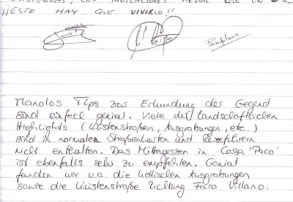 ¡¡ESTO HAY QUE VIVIRLO!!
Manolos Tips zur Erkundung der Gegend
sind einfach genial. Viele der landschaftlichen
Highlights (Küstenstraßen, Ausgrabungen, etc.)
sind in normalen Straßenkarten und Reiseführern
nicht enthalten. Das Mittagessen in Casa 'Paco'
ist ebenfalls sehr zu empfehlen. Genial
fanden wir u.a. die keltischen Ausgrabungen
sowie die Küstenstraße Richtung Faro Villano.